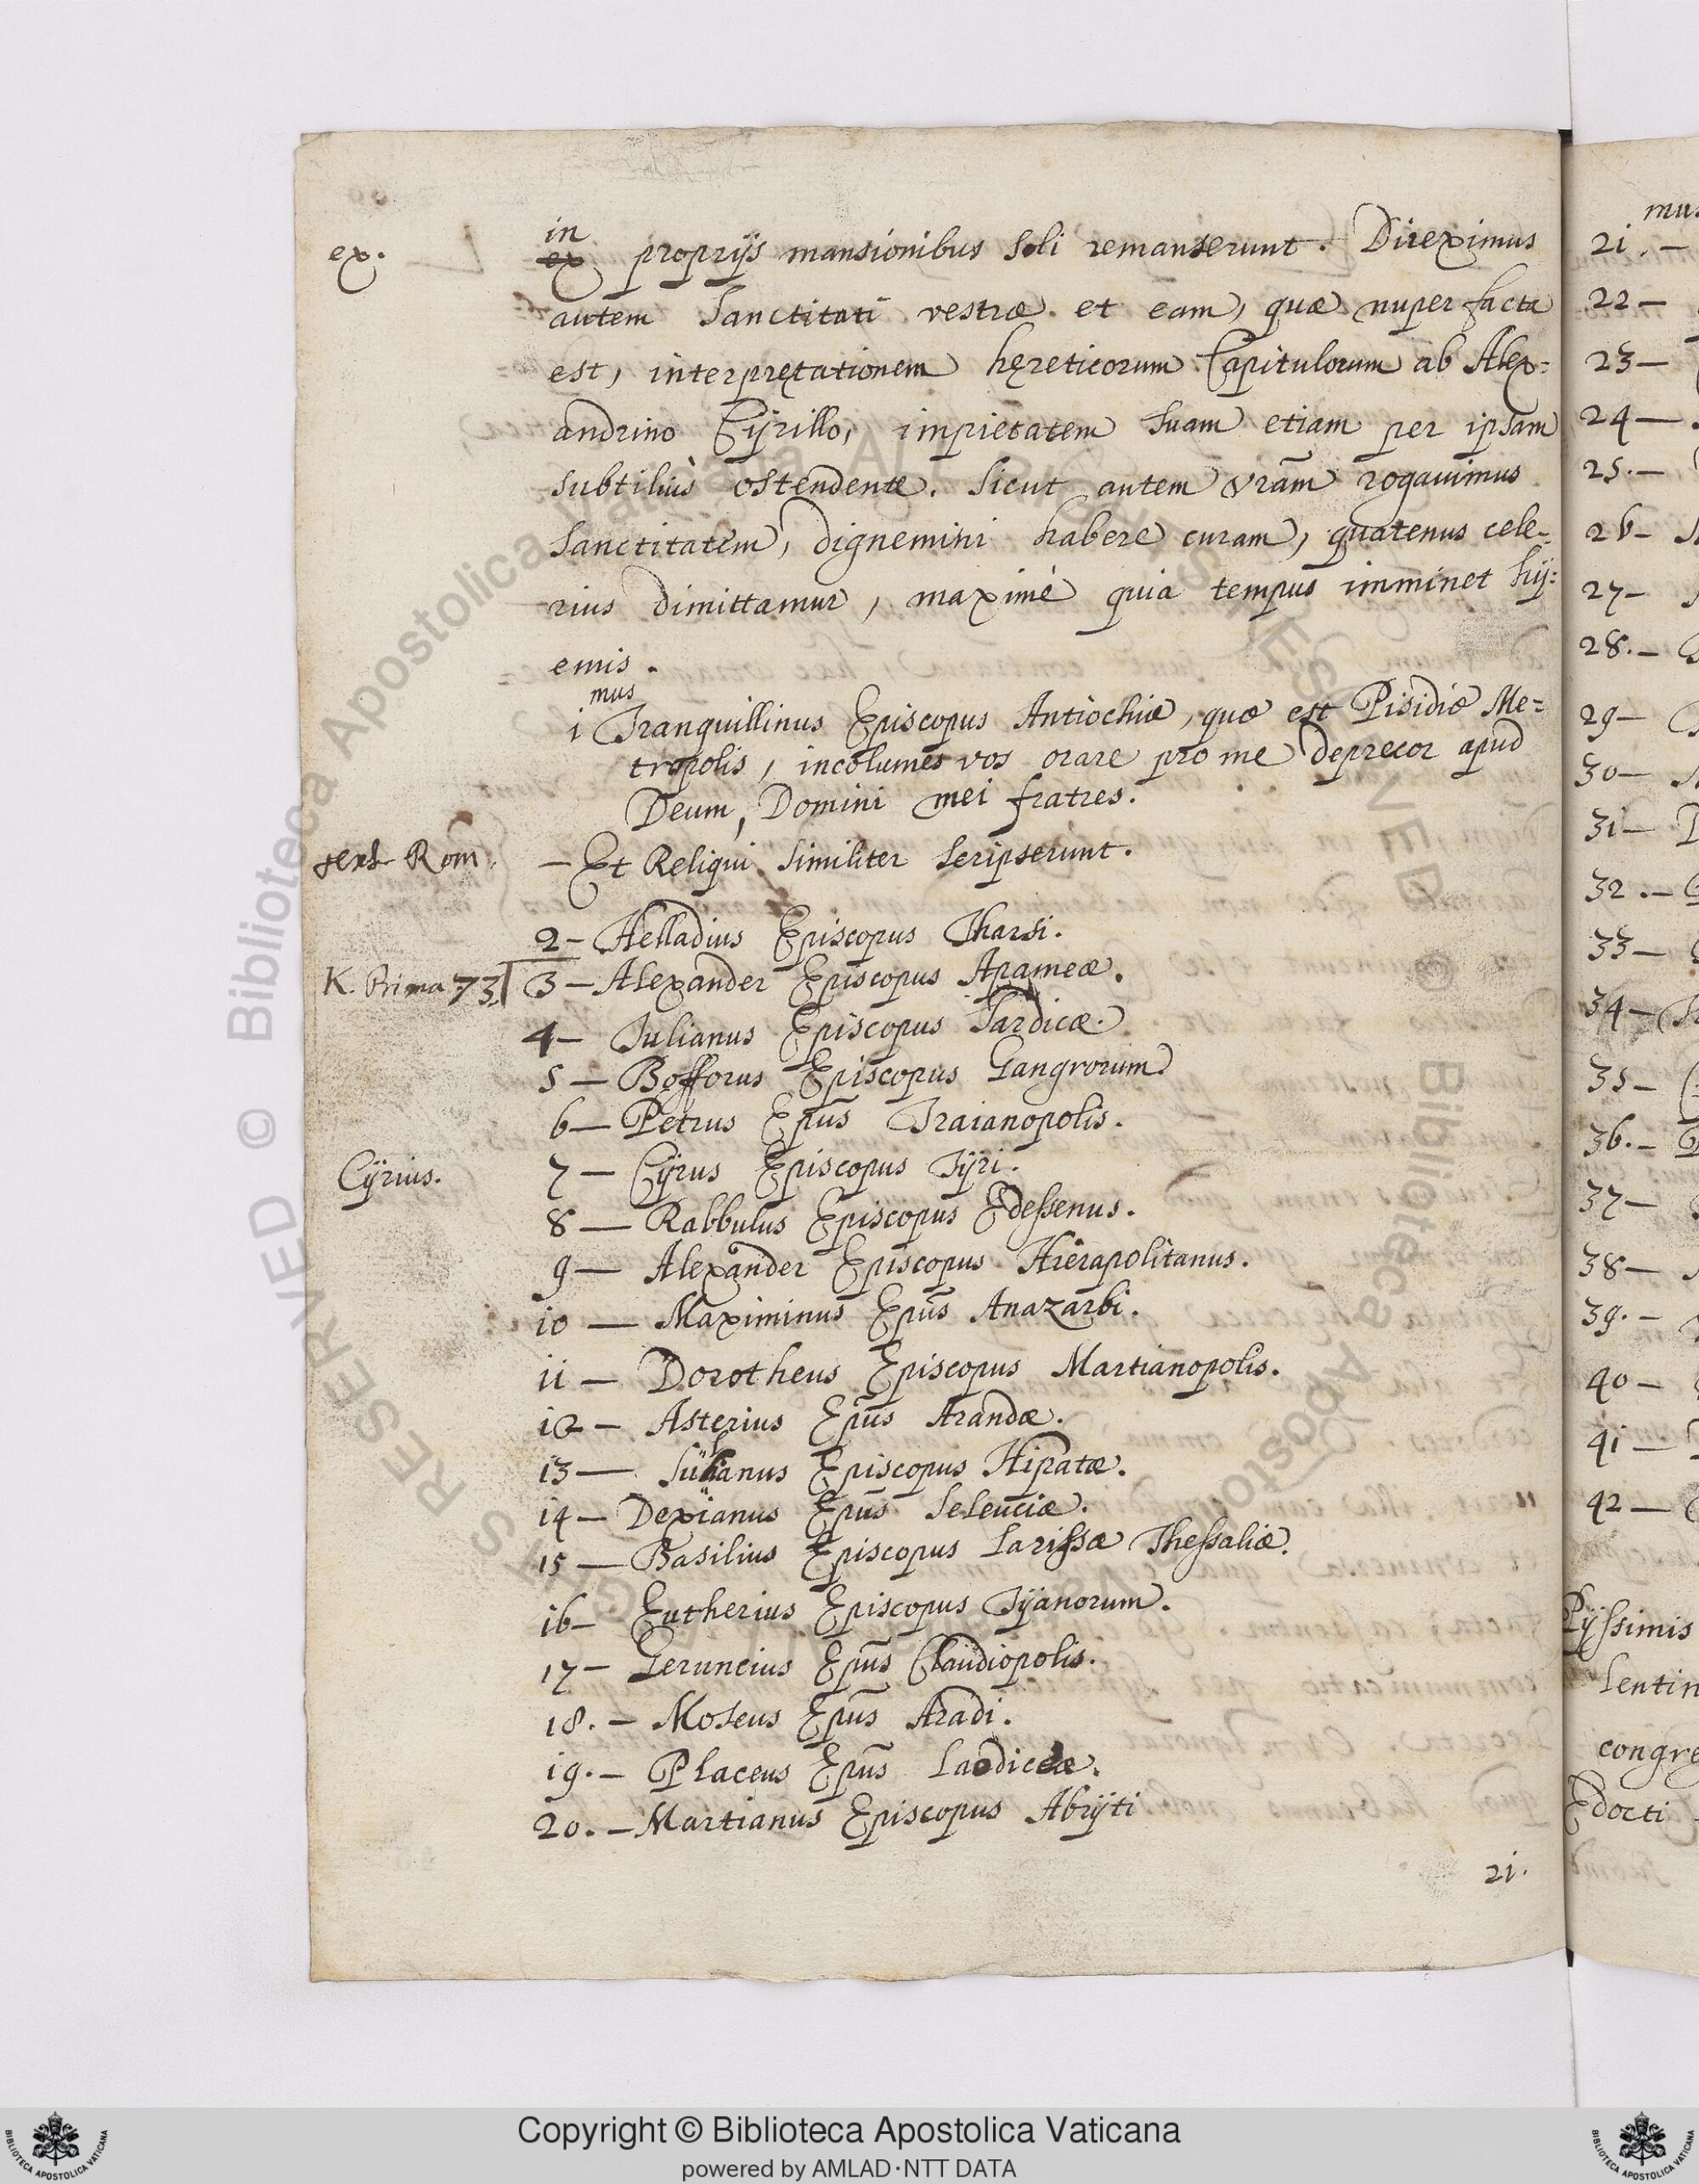 in
ex. ex proprijs mansionibus soli remanserunt. Direximus
autem Sanctitati vestræ et eam, quæ nuper facta
est, interpretationem hęreticorum Capitulorum ab Alex=
andrino Cyrillo, impietatem suam etiam per ipsam
subtiliùs ostendente. Sicut autem vram̃ rogauimus
Sanctitatem, dignemini habere curam, quatenus cele-
rius dimittamur, maximè quia tempus imminet hij=
emis.
mus
i Tranquillinus Episcopus Antiochiæ, quæ est Pisidiæ Me=
tropolis, incolumes vos orare pro me deprecor apud
Deum, Domini mei fratres.
Rom̃. — Et Reliqui similiter scripserunt.
2 — Helladius Episcopus Tharsi.
K. Prima 73. 3 — Alexander Episcopus Apameæ.
4 — Iulianus Episcopus Sardicæ.
5 — Bofforus Episcopus Gangrorum
6 — Petrus Epũs Traianopolis.
Cÿrius. 7 — Cÿrus Episcopus Tÿri.
8 — Rabbulus Episcopus Edessenus.
9 — Alexander Episcopus Hierapolitanus.
10 — Maximinus Epũs Anazarbi.
11 — Dorotheus Episcopus Martianopolis.
12 — Asterius Epũs Arandæ.
13 — Episcopus Hipatæ.
14 — Dexianus Epũs Seleuciæ.
15 — Basilius Episcopus Larissæ Thessaliæ.
16 — Eutherius Episcopus Tÿanorum.
17 — Geruncius Epũs Claudiopolis.
18. — Moseus Epũs Aradi.
19. — Placeus Epũs Laodiceæ.
20. — Martianus Episcopus Abrÿti
21.
mus
21. —
22 —
23 —
24 —
25. —
26 —
27 —
28. —
29 —
30 —
31 —
32. —
33 —
34 —
35 —
36. —
37 —
38 —
39. —
40 —
41 —
42 —
Pijssimis
lentin
congre
Edocti
© Biblioteca Apostolica Vaticana ALL RIGHTS RESERVED
Copyright © Biblioteca Apostolica Vaticana
powered by AMLAD·NTT DATA
BIBLIOTECA APOSTOLICA VATICANA
BIBLIOTECA APOSTOLICA VATICANA